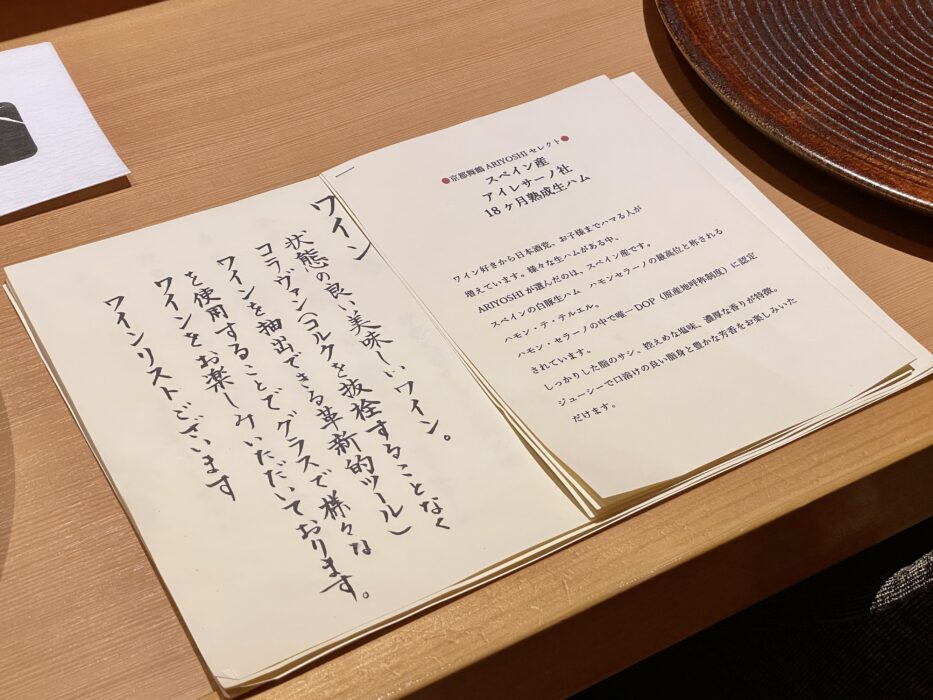 ワイン
状態の良い美味しいワイン。
コラヴァン(コルクを抜栓することなく
ワインを抽出できる革新的ツール)
を使用することでグラスで様々な
ワインをお楽しみいただいております。
ワインリストございます
●京都舞鶴 ARIYOSHI セレクト●
スペイン産
アイレサーノ社
18ヶ月熟成生ハム
ワイン好きから日本酒党、お子様までハマる人が
増えています。様々な生ハムがある中、
ARIYOSHI が選んだのは、スペイン産です。
スペインの白豚生ハム ハモンセラーノの最高位と称される
ハモン・デ・テルエル。
ハモン・セラーノの中で唯一 DOP(原産地呼称制度)に認定
されています。
しっかりした脂のサシ、控えめな塩味、濃厚な香りが特徴。
ジューシーで口溶けの良い脂身と豊かな芳香をお楽しみいた
だけます。